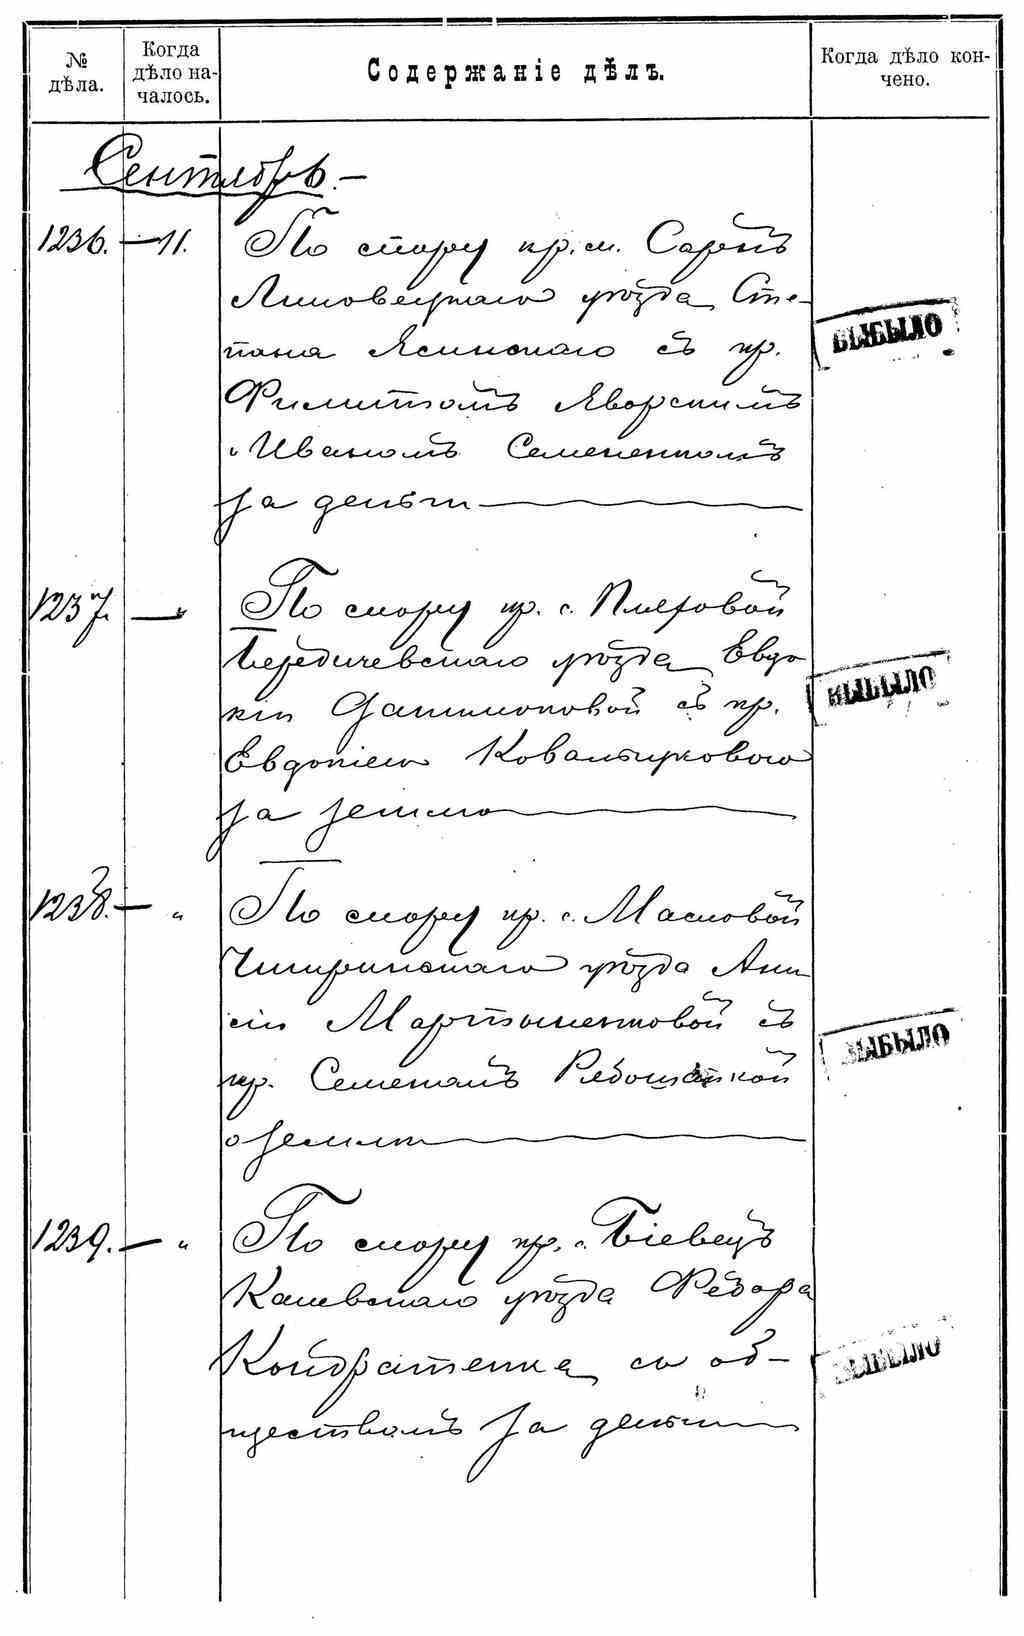 № дѣла.
Когда дѣло на-
чалось.
Содержаніе дѣлъ.
Когда дѣло кон-
чено.
Сентябрь.—
1236. — 11. По спору кр. м. Сарнъ
Липовецкаго уѣзда Сте-
пана Ясинскаго съ кр.
Филиппомъ Яворскимъ
и Иваномъ Семененкомъ
за деньги
ВЫБЫЛО
1237. — " По спору кр. с. Пляховой
Бердичевскаго уѣзда Евдо
кіи съ кр.
Евдокіею Ковальчуковою
за землю
ВЫБЫЛО
1238. — " По спору кр. с. Масловой
Чигиринскаго уѣзда Ани
сіи Мартыненковой съ
кр. Семеномъ Рябошапкой
о землѣ
ВЫБЫЛО
1239. — " По спору кр. с. Біевецъ
Каневскаго уѣзда Ѳедора
Кондратенка съ об-
ществомъ за деньги
ВЫБЫЛО